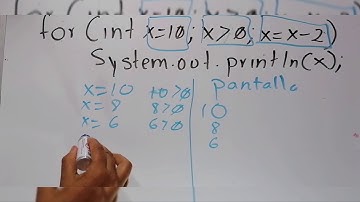 for (int x=10; x>0; x=x-2)
System.out.println(x);
x=10 10>0 pantalla
x=8 8>0 10
x=6 6>0 8
6